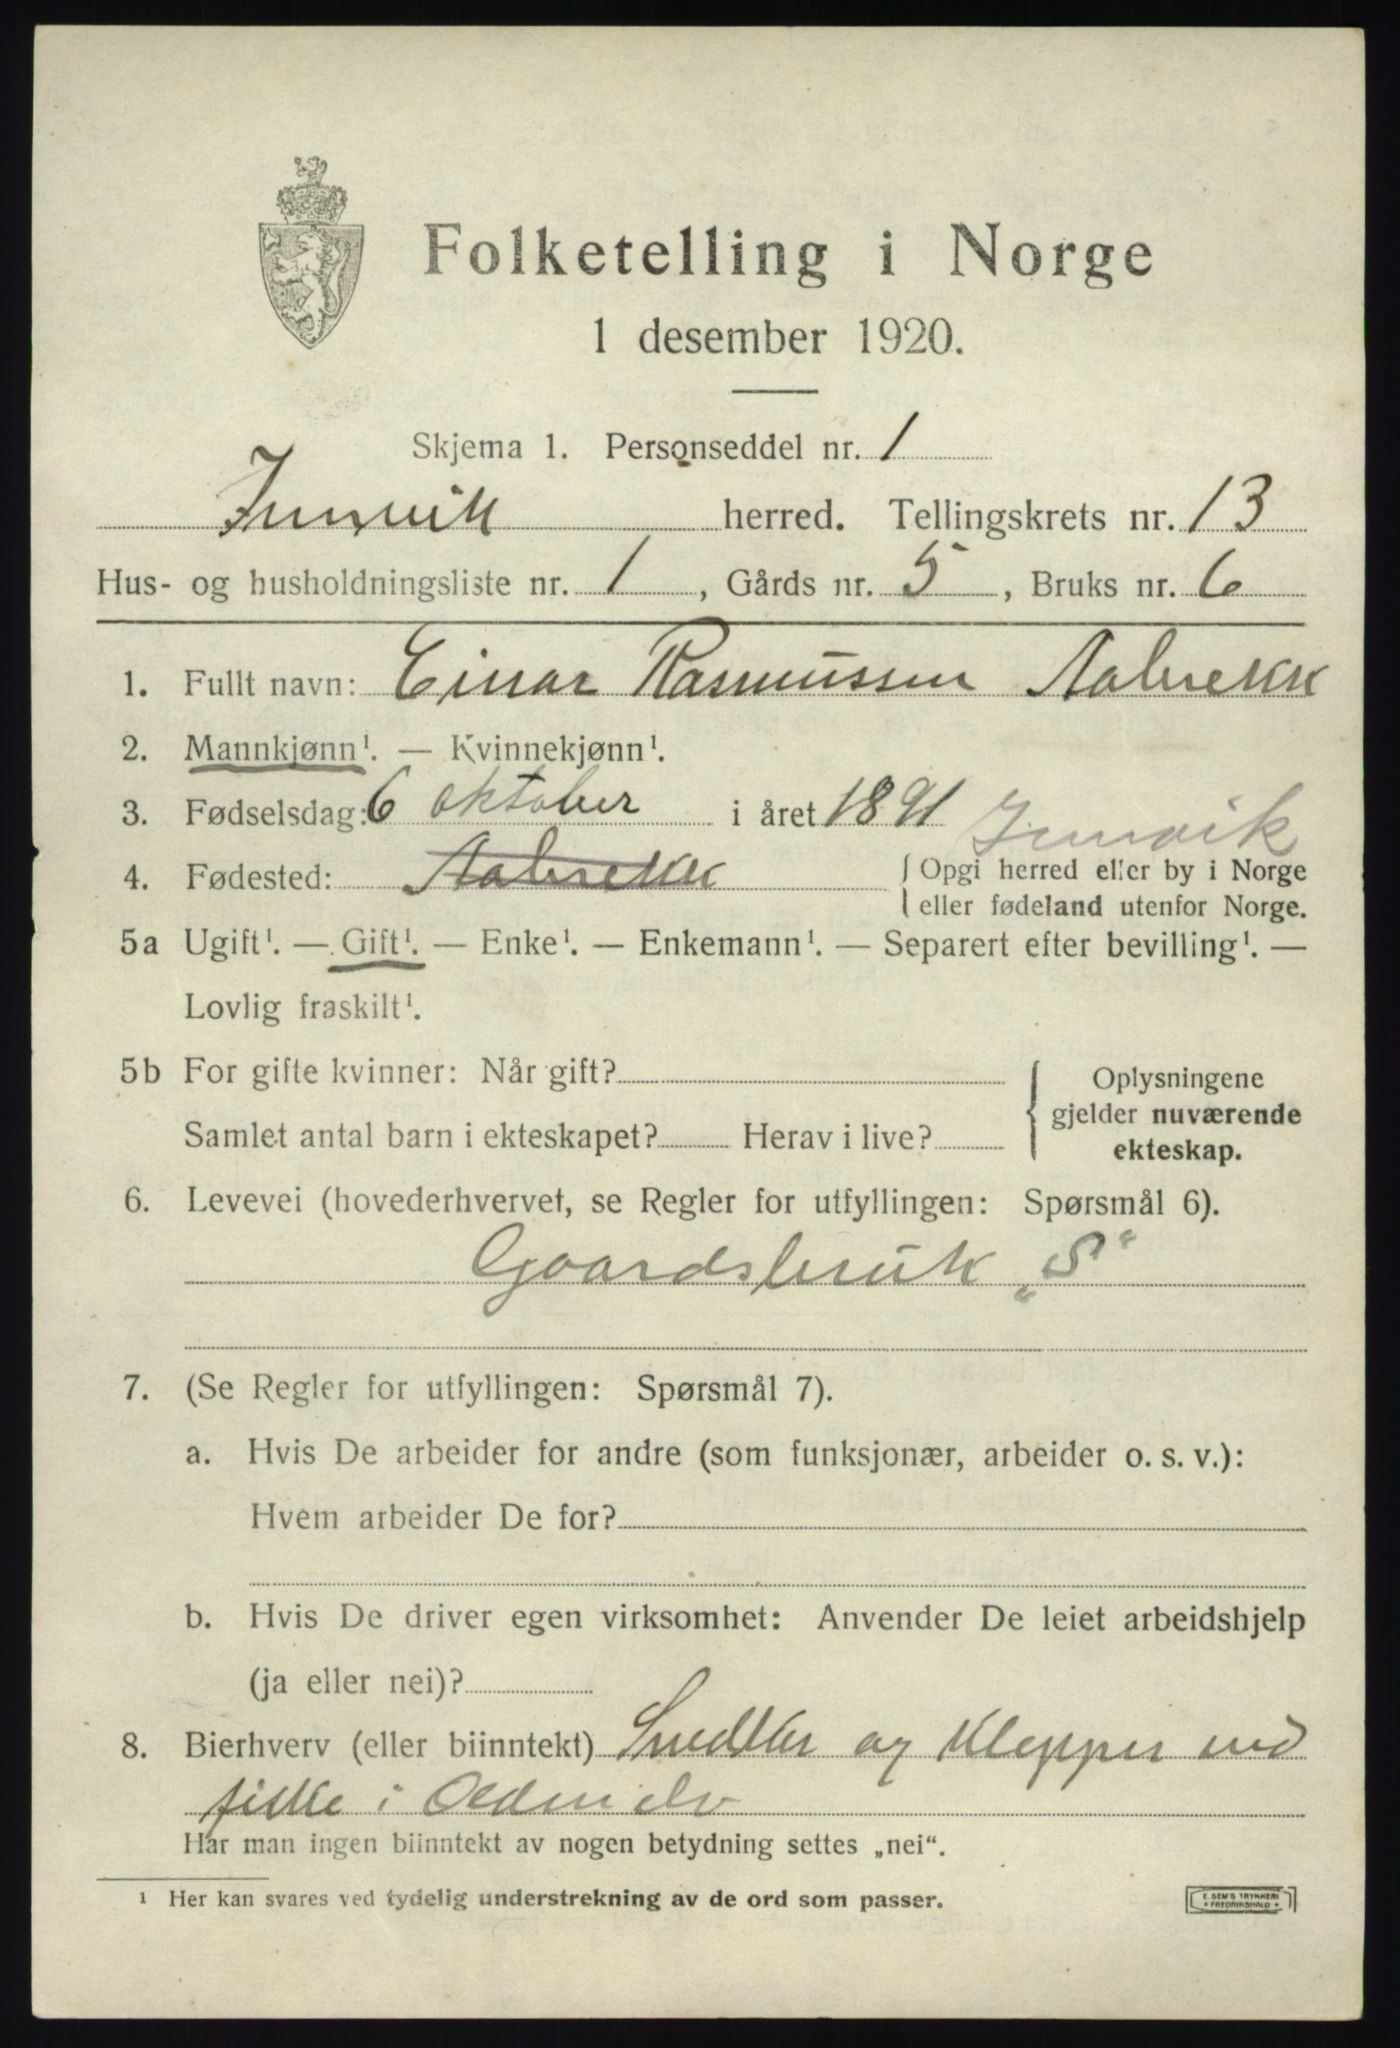 Folketelling i Norge
1 desember 1920.
Skjema 1. Personseddel nr. 1
Innvik herred. Tellingskrets nr. 13
Hus- og husholdningsliste nr. 1, Gårds nr. 5, Bruks nr. 6
1. Fullt navn: Einar Rasmussen Aabrekk
2. Mannkjønn¹. — Kvinnekjønn¹.
3. Fødselsdag: 6 oktober i året 1891
Innvik
4. Fødested: Aabrekk { Opgi herred eller by i Norge
eller fødeland utenfor Norge.
5a Ugift¹. — Gift¹. — Enke¹. — Enkemann¹. — Separert efter bevilling¹. —
Lovlig fraskilt¹.
5b For gifte kvinner: Når gift? { Oplysningene
gjelder nuværende
Samlet antal barn i ekteskapet? Herav i live?
ekteskap.
6. Levevei (hovederhvervet, se Regler for utfyllingen: Spørsmål 6).
Gaardsbruk „S“
7. (Se Regler for utfyllingen: Spørsmål 7).
a. Hvis De arbeider for andre (som funksjonær, arbeider o. s. v.):
Hvem arbeider De for?
b. Hvis De driver egen virksomhet: Anvender De leiet arbeidshjelp
(ja eller nei)?
8. Bierhverv (eller biinntekt) og Klepper ved
fiske i Olden elv
Har man ingen biinntekt av nogen betydning settes „nei“.
¹ Her kan svares ved tydelig understrekning av de ord som passer.
E. SEM'S TRYKKERI
FREDRIKSHALD